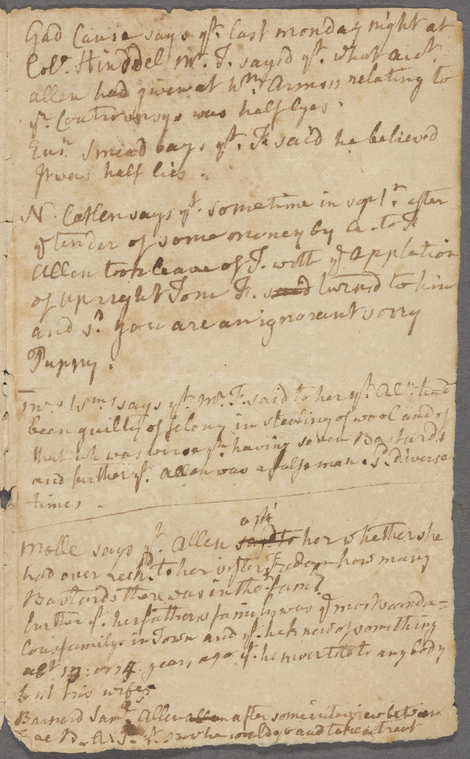 Gad Cause says yt. last monday night at
Colo. Hinddel Mr. F. sayd yt. what acct
allen had given at Wm. Armss relating to
ye. Controversye was half lyes.
Ensn. Smead says yt. F. said he believed
It was half lies.
N. Catlen says yt. sometime in sept. after
ye tender of some money by A. to F.
Allen took leave of F. with ye appelation
of upright Tom F. said turned to him
and sd. you are an ignorant sorry
Puppy.
says yt. Mr. F. said to her yt. Aln. had
been guilty of felony in stealing of wool and of
that wh was worse yn. having seven Bastards
and further yt. Allen was a false man. Sd. diverse
times.
askt
Molle says yt. Allen sayd to her whether she
had ever to her sister how many
Bastards there was in the fam?
further yt. her fathers family was ye most scanda=
lous family in Town and yt. he knew of something
act 13. or 14. years ago yt. he never told to any body
but his wife
Barnard Allen allen after some interview between
he would go and take